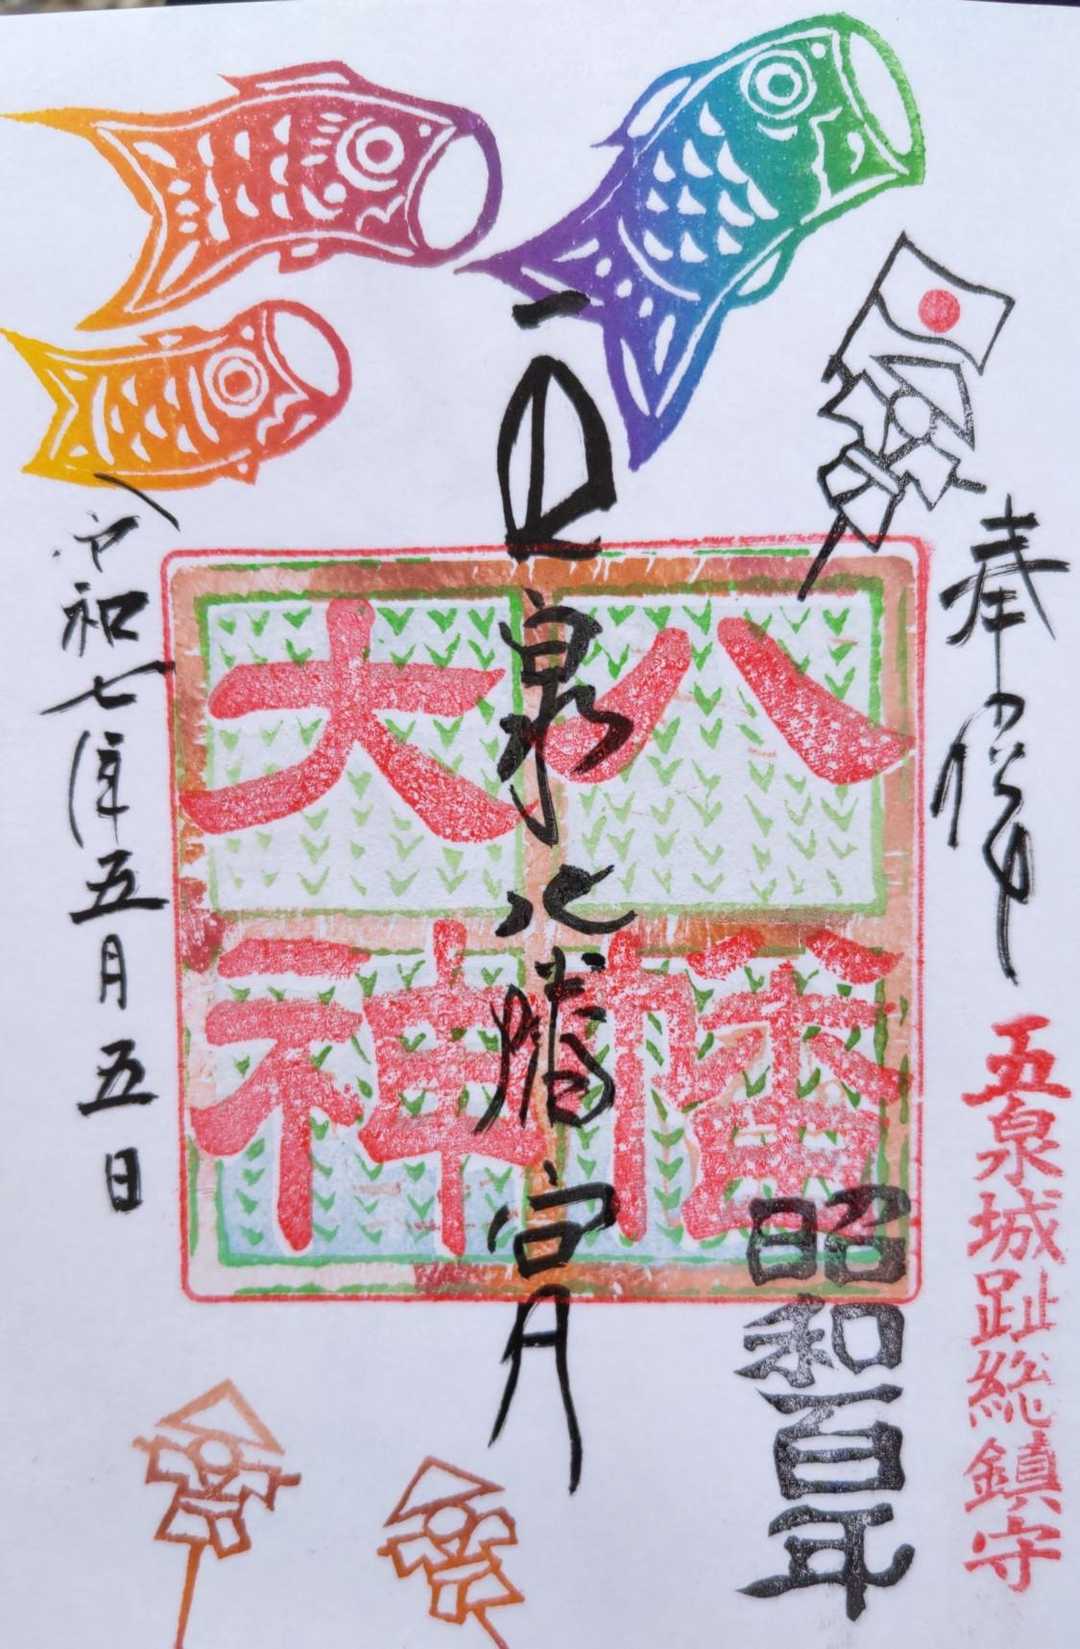 奉拝
五泉城趾総鎮守
昭和百年
五泉八幡宮
八幡
大神
令和七年五月五日